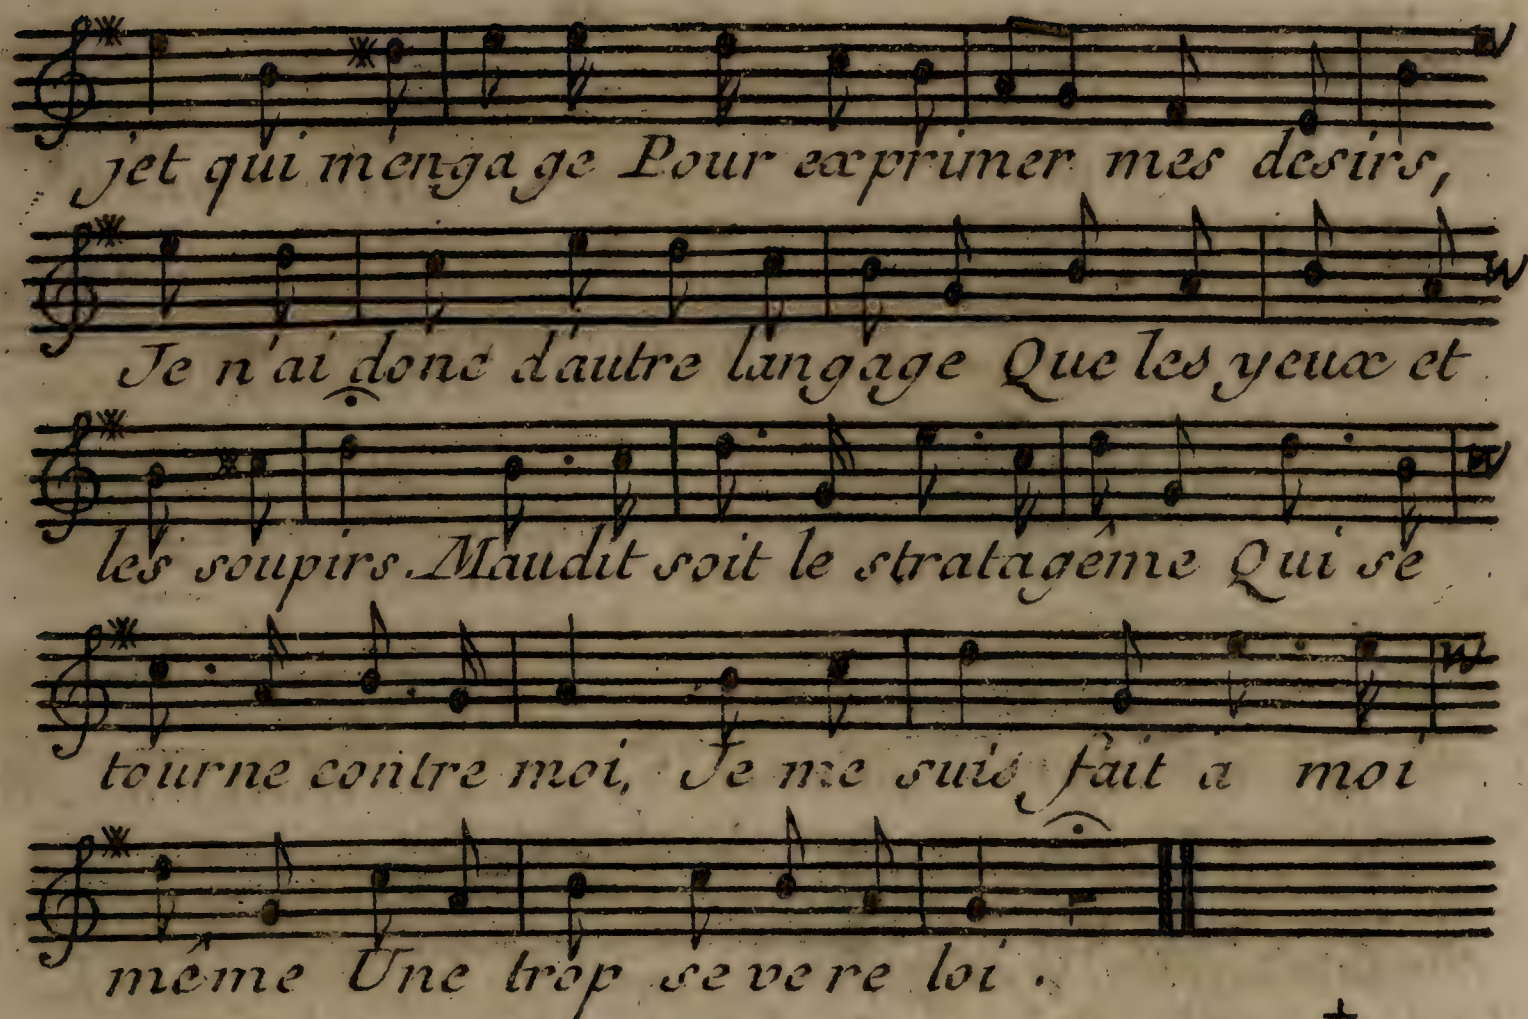 jet qui m'engage Pour exprimer mes desirs,
Je n'ai donc d'autre langage Que les yeux et
les soupirs. Maudit soit le stratagême Qui se
tourne contre moi, Je me suis fait à moi
même Une trop severe loi.